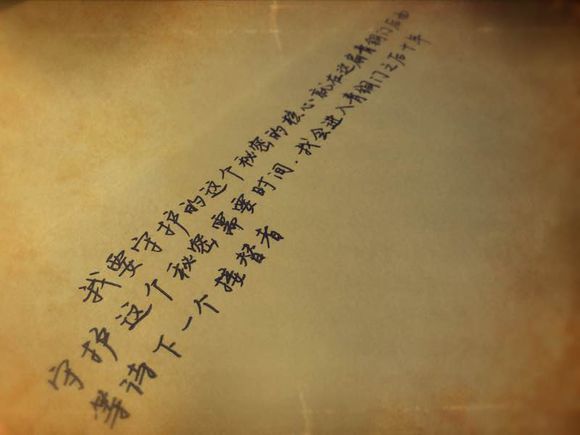 我要守护的这个秘密的核心就在这扇青铜门后面
守护这个秘密需要时间.我会进入青铜门之后十年
等待下一个接替者